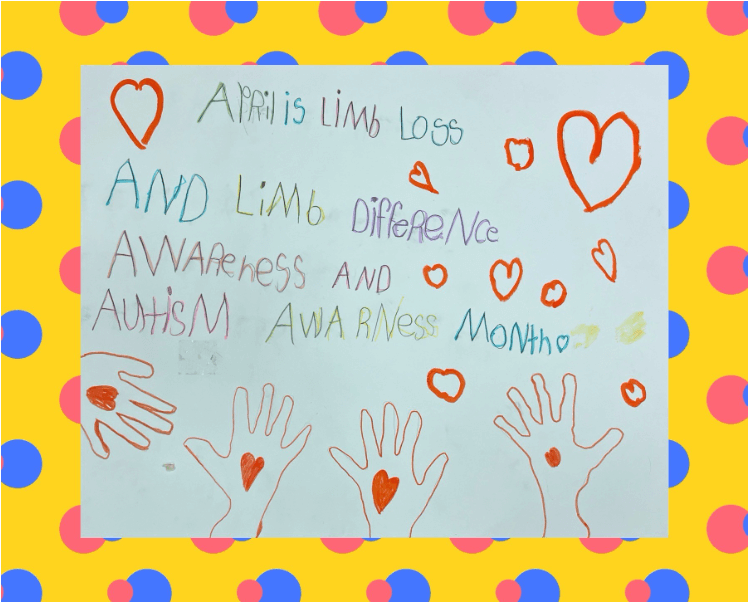 April is Limb Loss
AND LiMb DiffeReNce
AWAReness AND
AUtisM AWARNess MoNth